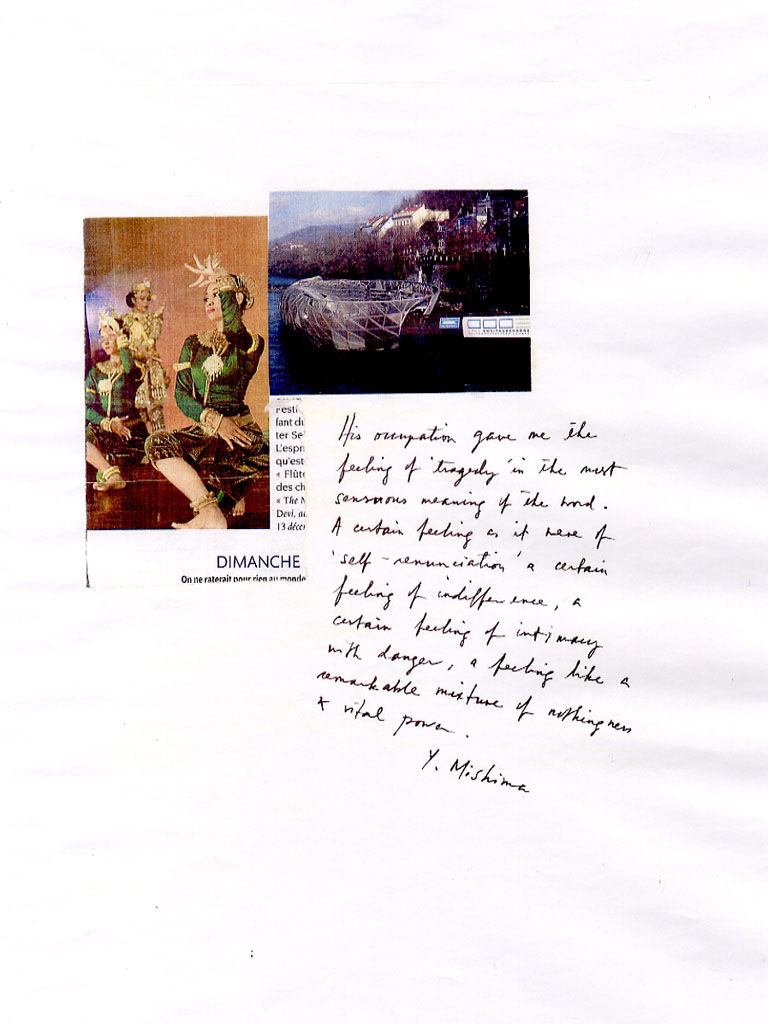 resti
fant du
ter Se
L'espri
qu'est
« Flûte
des ch
« The M
Devi, au
13 décem
DIMANCHE
On ne raterait pour rien au monde
His occupation gave me the
feeling of 'tragedy' in the most
sensuous meaning of the word.
A certain feeling as it were of
'self-renunciation' a certain
feeling of indifference, a
certain feeling of intimacy
with danger, a feeling like a
remarkable mixture of nothingness
& vital power.
Y. Mishima